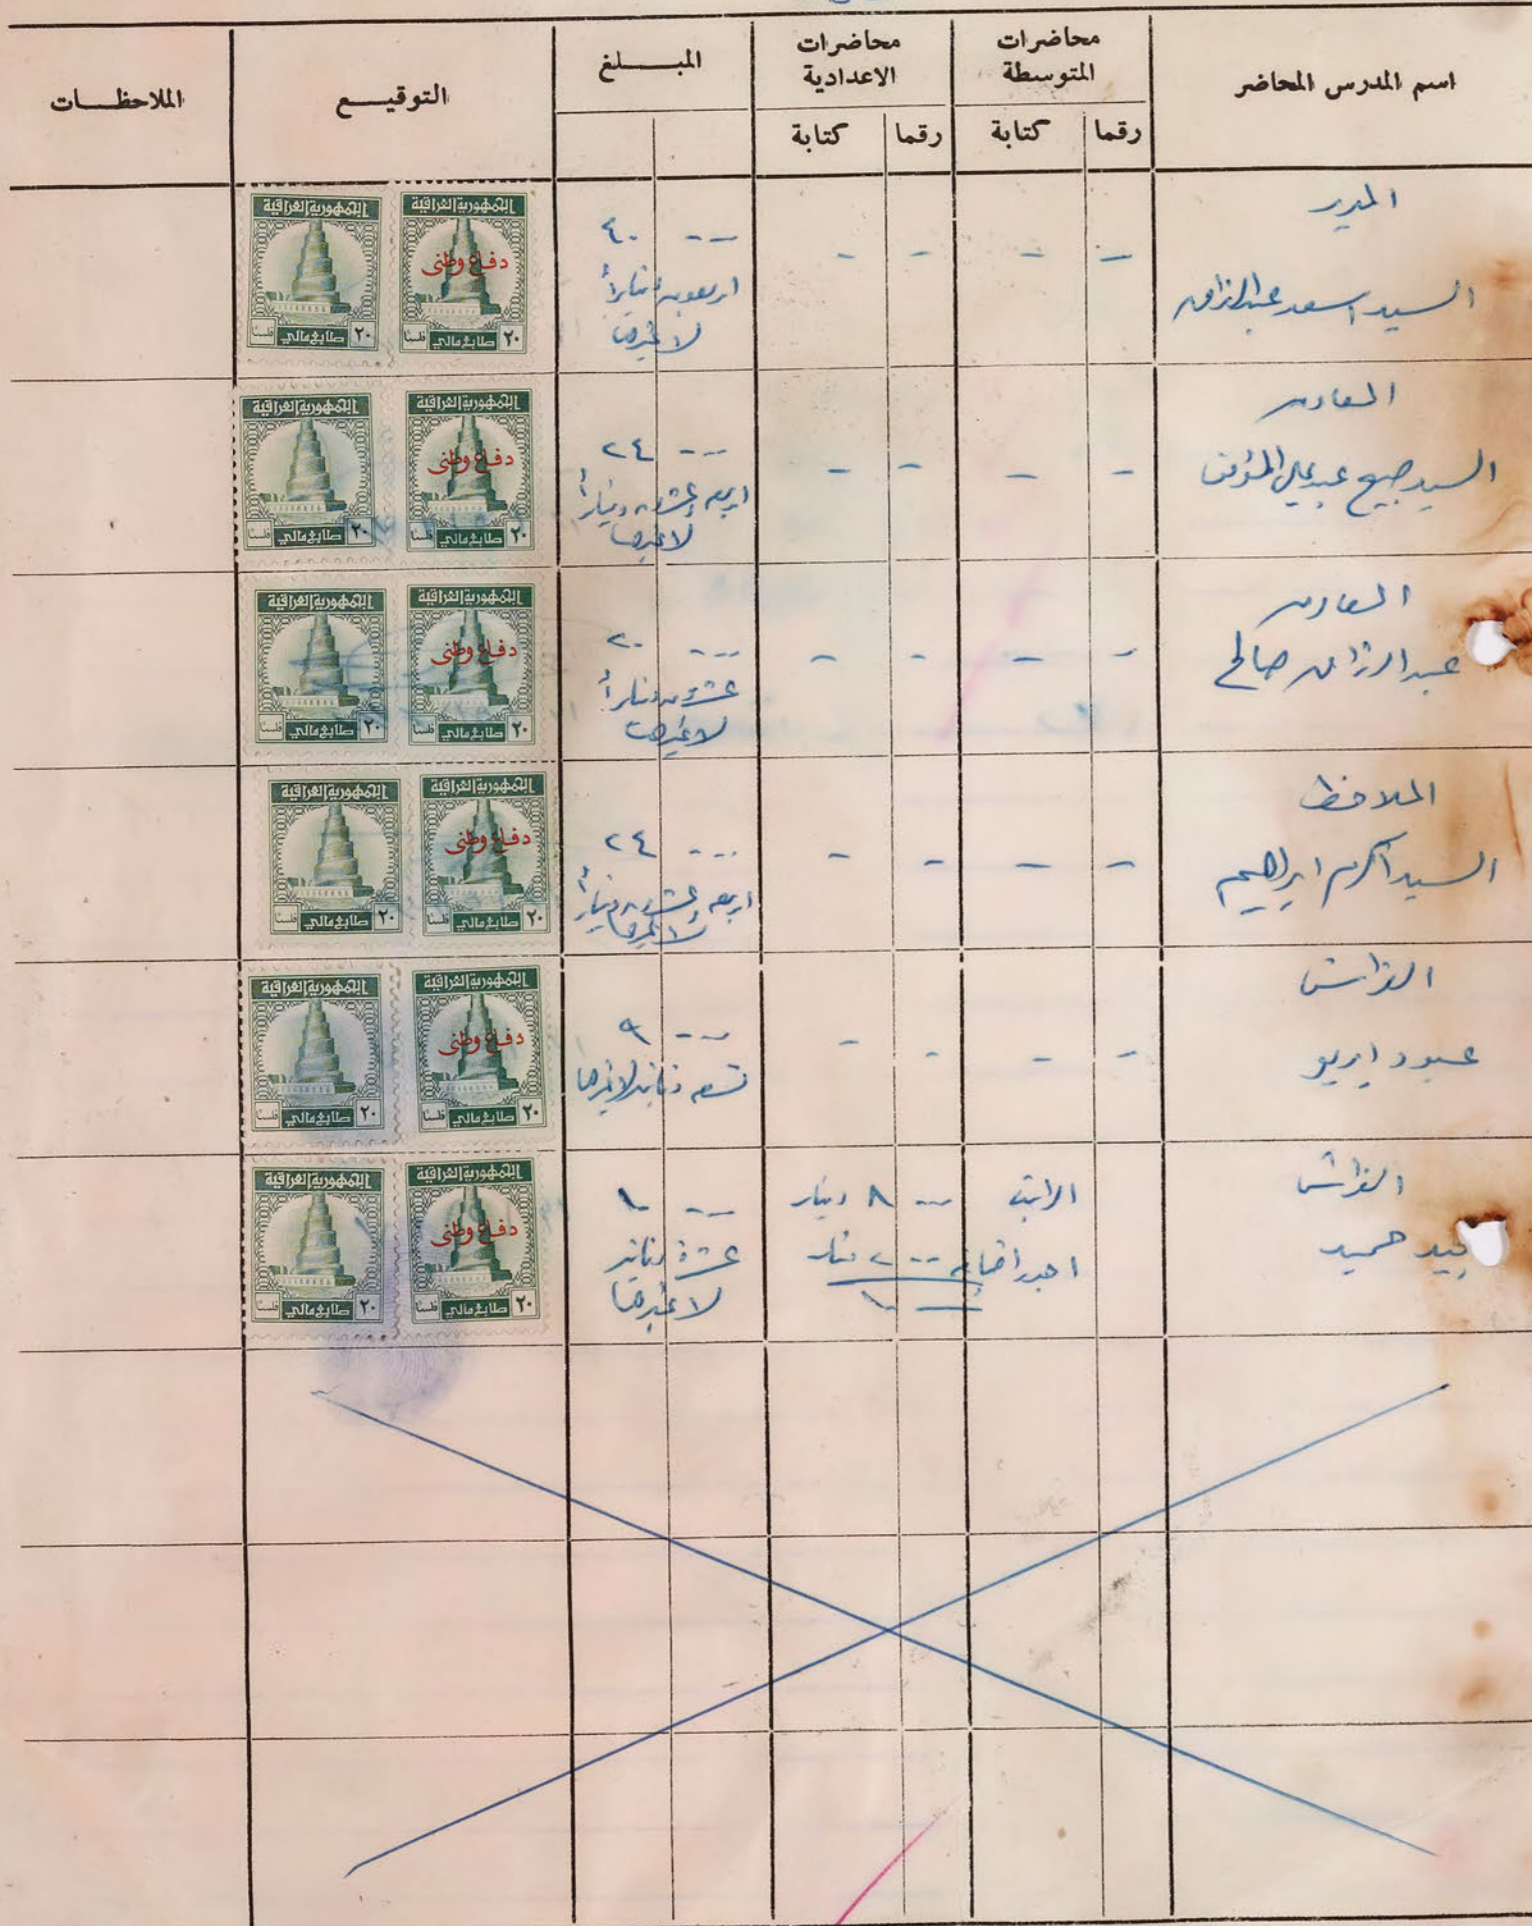 اسم المدرس المحاضر
محاضرات المتوسطة
محاضرات الاعدادية
المبــــلغ
التوقيــــع
الملاحظــــات
رقما
كتابة
رقما
كتابة
المدير
السيد اسعد عبدالرزاق
- - - -
--- ٤٠
اربعون ديناراً
لا غيرها
الجمهورية العراقية
دفاع وطني
٢٠ طابع مالي فلسًا
الجمهورية العراقية
٢٠ طابع مالي فلسًا
المعاون
السيد صبيح عبد علي
- - - -
--- ٢٤
اربعه وعشرون ديناراً
لا غيرها
الجمهورية العراقية
دفاع وطني
٢٠ طابع مالي فلسًا
الجمهورية العراقية
٢٠ طابع مالي فلسًا
المعاون
عبد الرزاق صالح
- - - -
--- ٢٠
عشرون ديناراً
لا غيرها
الجمهورية العراقية
دفاع وطني
٢٠ طابع مالي فلسًا
الجمهورية العراقية
٢٠ طابع مالي فلسًا
الملاحظ
السيد اكرم ابراهيم
- - - -
--- ٢٤
اربعه وعشرون ديناراً
لا غيرها
الجمهورية العراقية
دفاع وطني
٢٠ طابع مالي فلسًا
الجمهورية العراقية
٢٠ طابع مالي فلسًا
الفراش
عبود
- - - -
--- ٩
تسعه دنانير لا غيرها
الجمهورية العراقية
دفاع وطني
٢٠ طابع مالي فلسًا
الجمهورية العراقية
٢٠ طابع مالي فلسًا
الفراش
حميد
الراتب --- ٨ دينار
اجور اضافية --- ٢ دينار
--- ١٠
--- ١٠
عشرة دنانير
لا غيرها
الجمهورية العراقية
دفاع وطني
٢٠ طابع مالي فلسًا
الجمهورية العراقية
٢٠ طابع مالي فلسًا